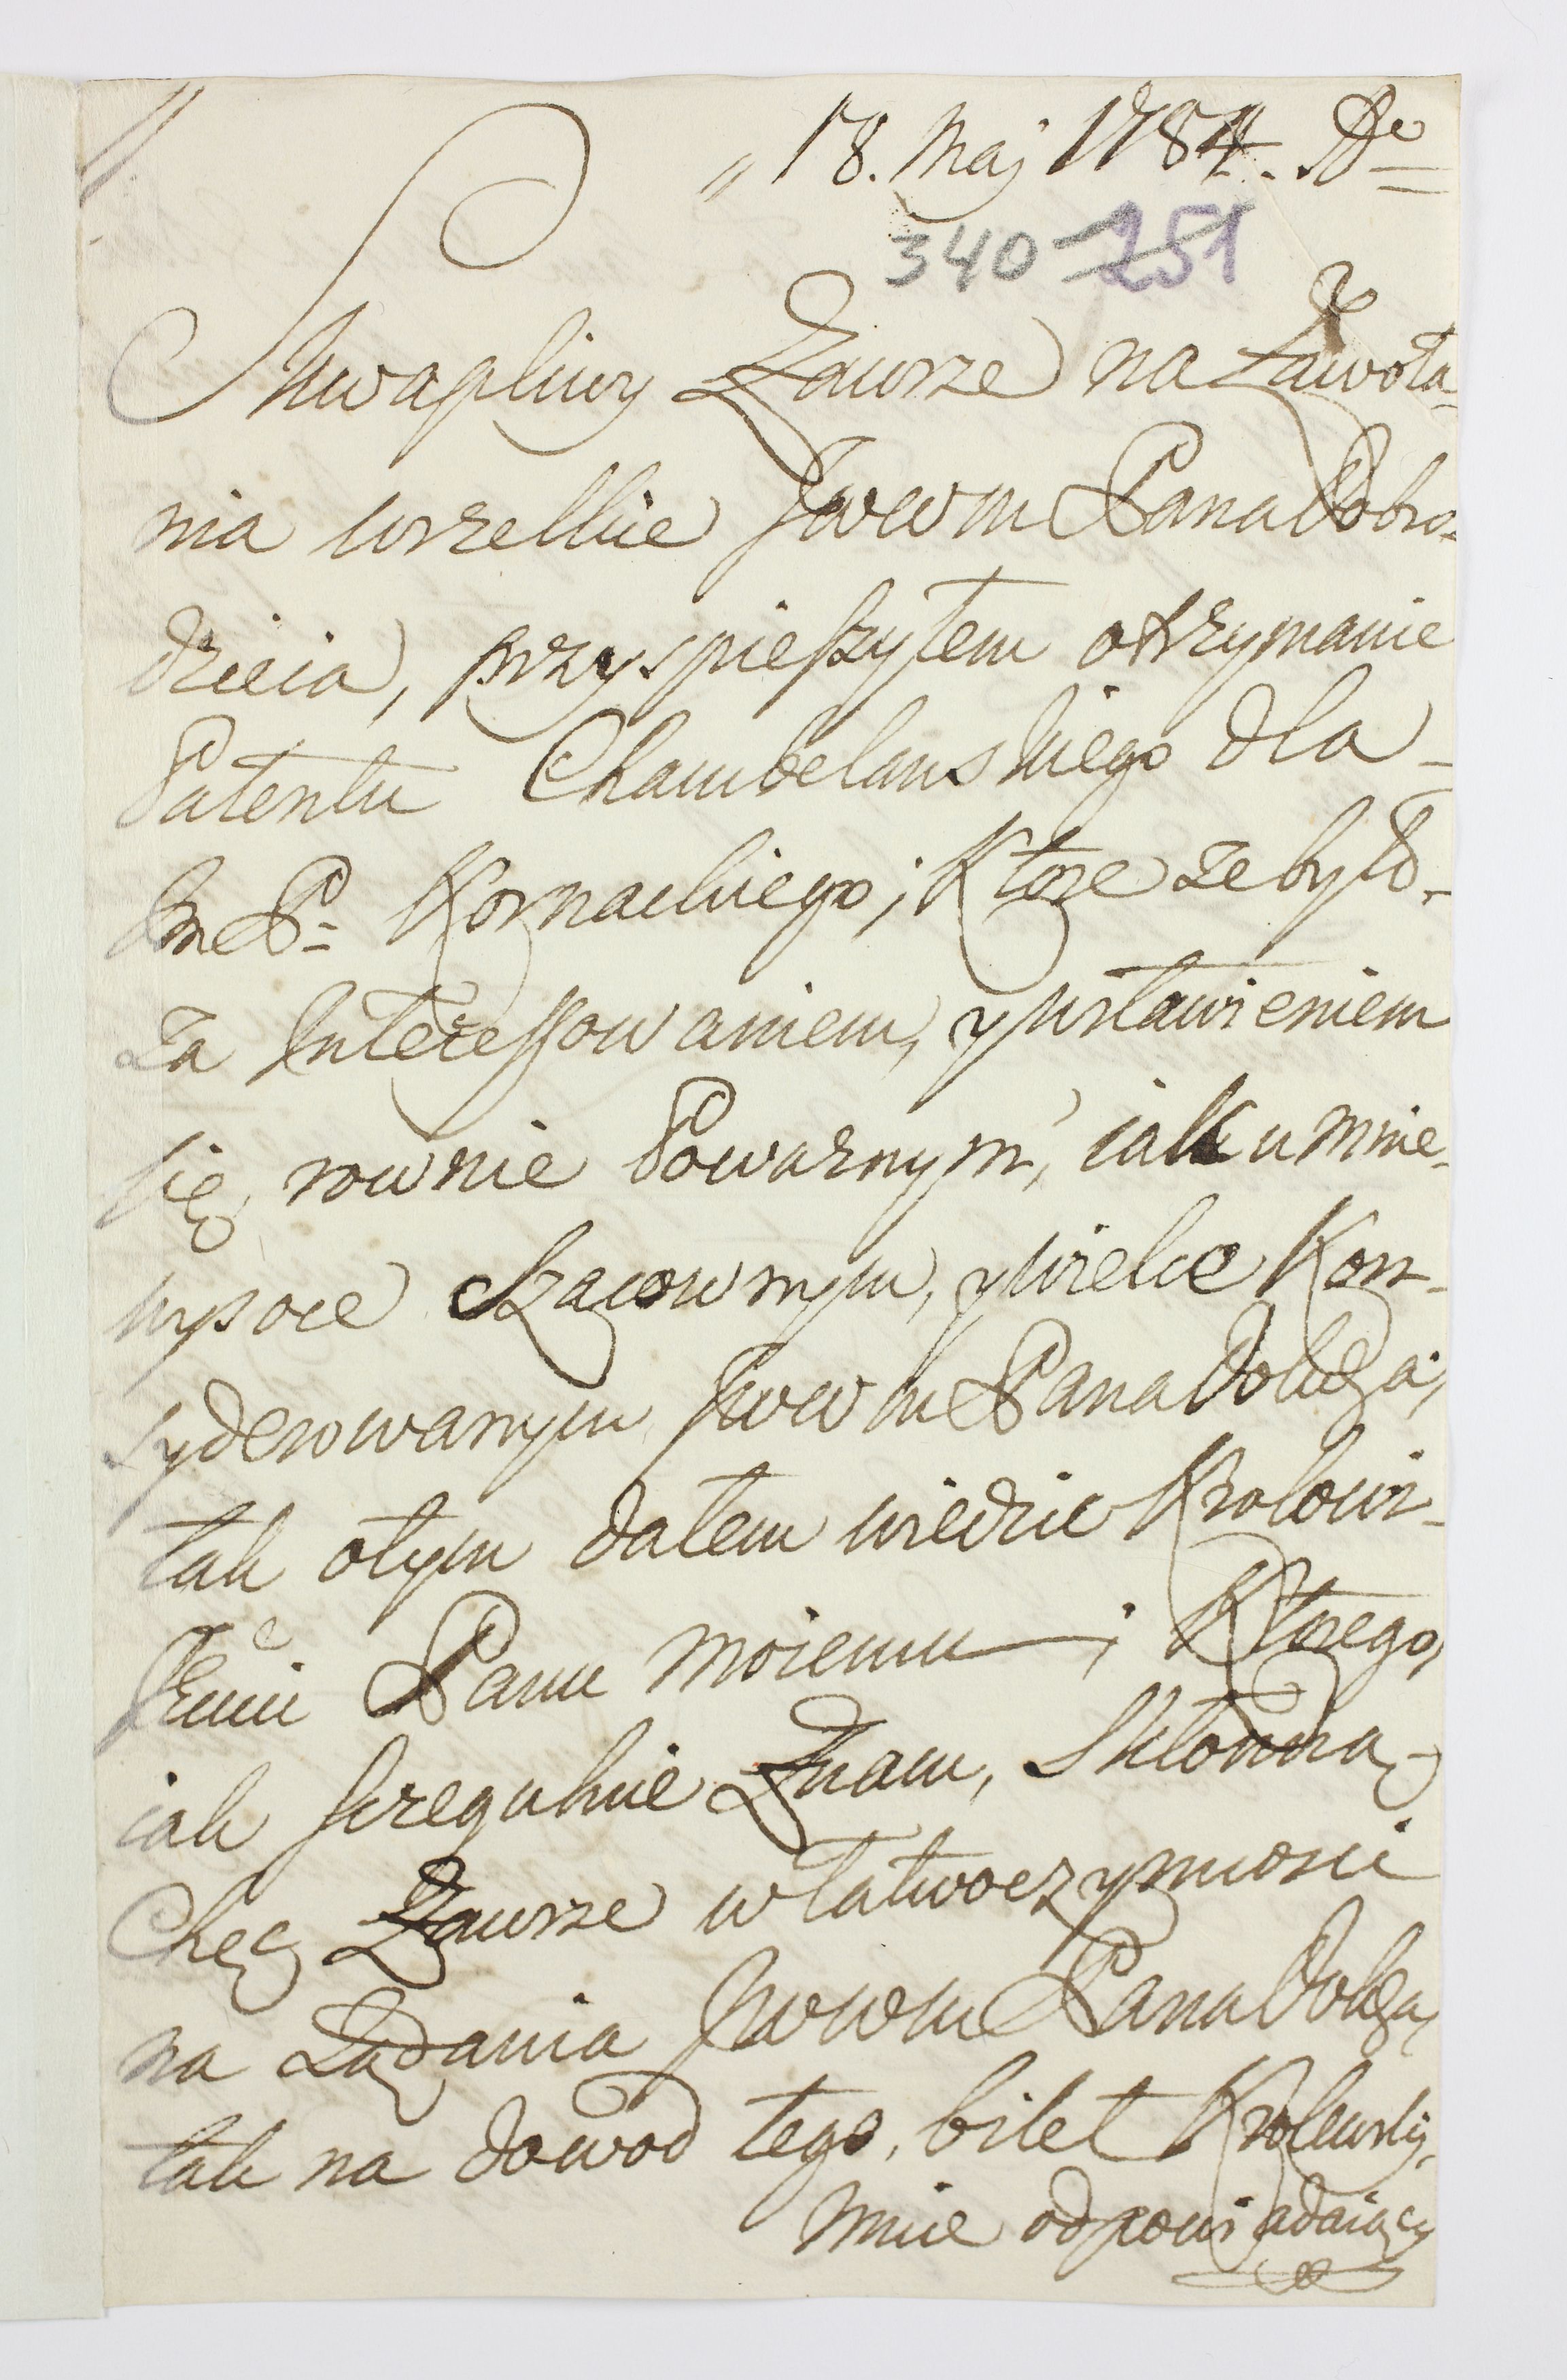 " 18. Maj 1784. De
340 251
Skwapliwy Zawsze na Zawoła-
nia wszelkie JWWM Pana Dobro-
dzieia, przyspieszyłem otrzymanie
Patentu Chambelanskiego dla-
Jm P= Kornackiego; Ktore ze było-
za Interessowaniem, y wstawieniem
się, rownie Powaznym, iak u mnie-
wysoce Szacownym, y wielce Kon-
syderowanym JWWM Pana Dobdza;
tak otym dałem wiedzie Krolowi-
Jemci Panu moiemu; Ktorego,
iak szczegulnie Znam, Skłonną-
Chęć Zawsze w łatwoczynnosci
na Ządania JWWM Pana Dobdza,
tak na dowod tego, bilet Krolewski,
mnie odpowiadaiący